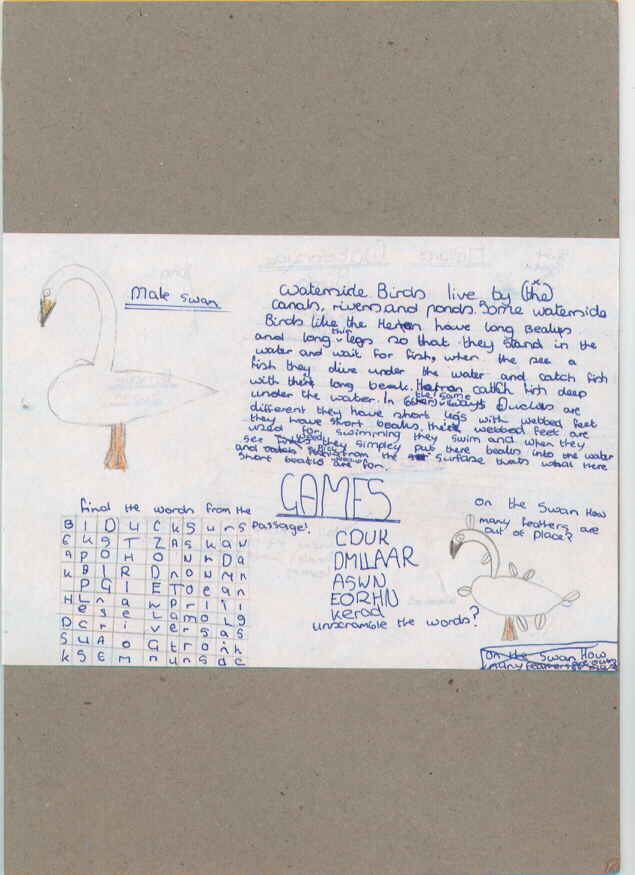 Male swan
Waterside Birds live by (the)
canals, rivers and ponds. Some waterside
Birds like the Heron have long beaks
and long thin legs so that they stand in the
water and wait for fish, when the see a
fish they dive under the water and catch fish
with their long beak. Herron catch fish deep
under the water. In the same ways Ducks are
different they have short legs with webbed feet
they have short beaks. their webbed feet are
used for swimming they swim and when they
see they simpley put there beaks into the water
and from the surfase thats what there
short beaks are for.
GAMES
find the words from the
passage!
B I D u C k S u r s
C k g T Z A s k a v
a p O H O N h D a
k B I R D n o w M n
P G I E T o e a n
H L n a w p r i l i
e s e L a m o L g
D c r i v e r s a s
S U A o G t r o n h
k S E m n u n s d c
CDUK
DMLLAAR
ASWN
EORHN
kerad
unscramble the words?
on the swan How
many feathers are
out of place?
on the swan How
many feathers are out